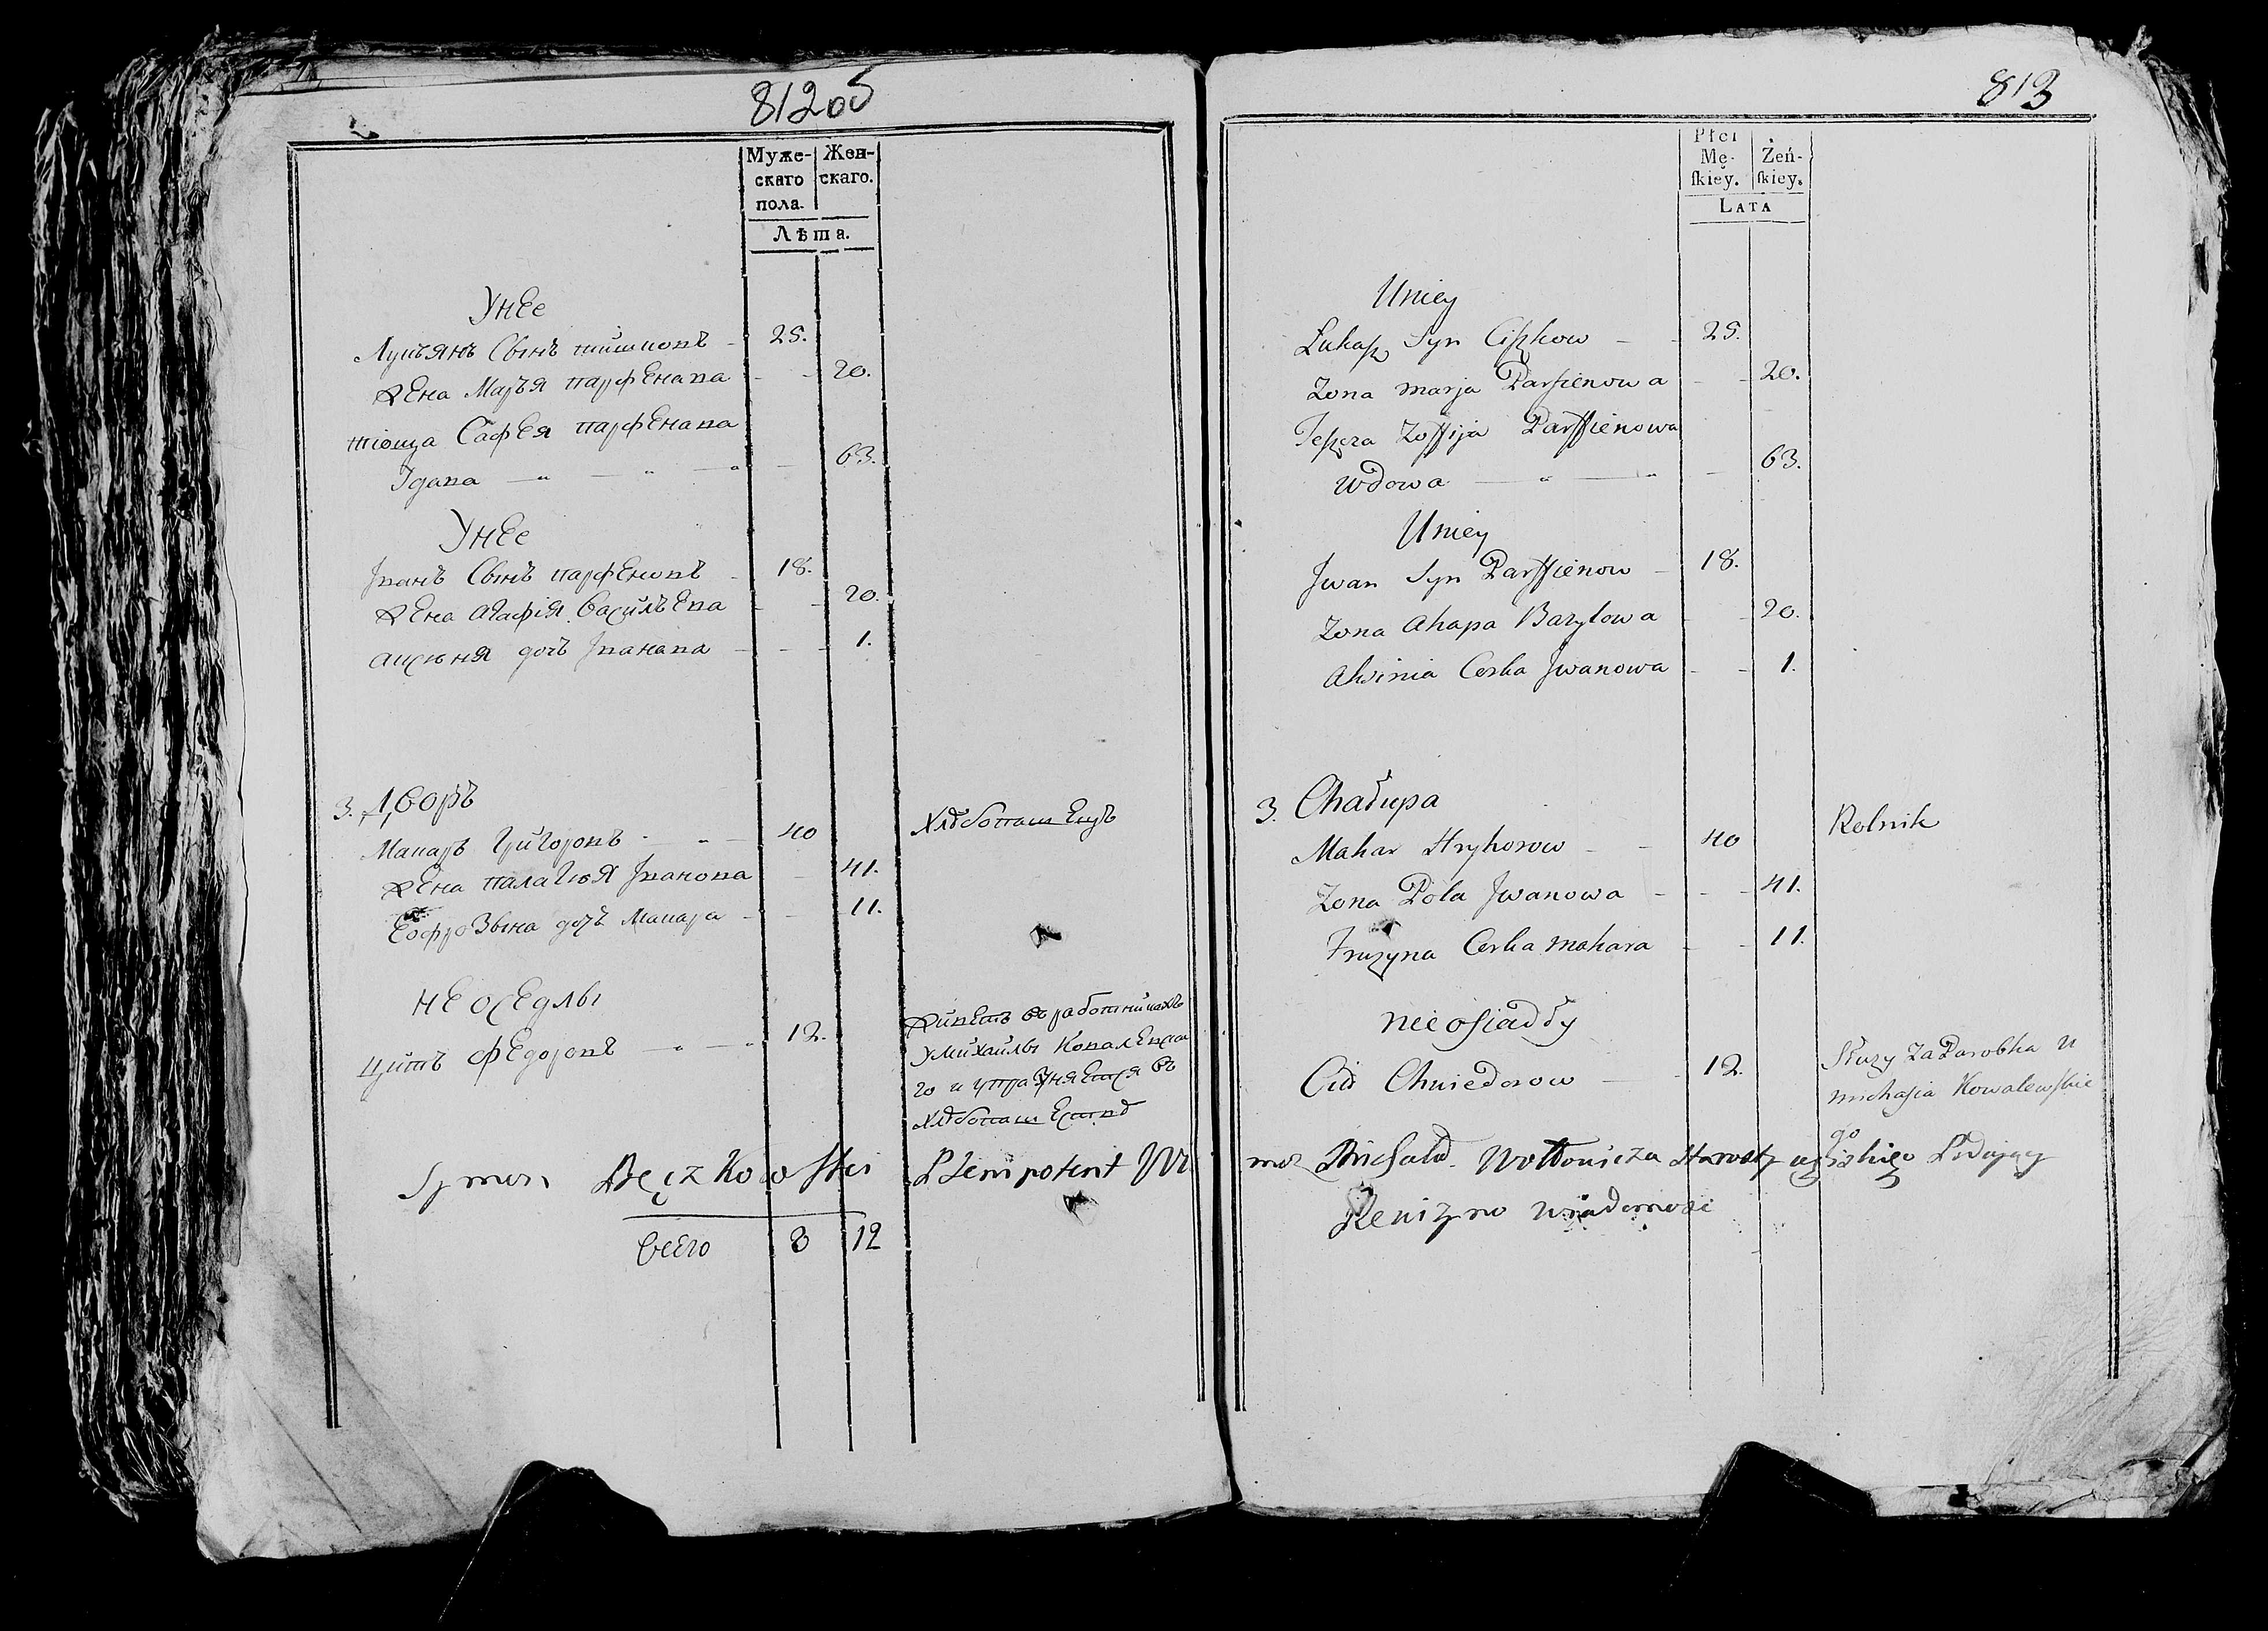 812 05
Муже-
скаго
пола.
Жен-
скаго.
Лѣта.
Унее
Лукъянъ Сынъ тишковъ - 25.
жена Марья парфенава - - 20.
тіоща Сафея парфенава
Удава — „ — „ — „ - 63.
Унее
Иванъ Сынъ парфеновъ - 18.
жена Агафія Васильева - - 20.
аксюня дочъ Иванава - - - 1.
3. Дворъ
Макаръ Григоровъ - „ - 40 Хлѣбопашецъ
жена палагея Иванова - 41.
Еофрозына дочъ Макара - - 11.
неоседлы
цитъ Федоровъ — „ — „ 12. живетъ въ работникахъ
Умихайлы Ковалевска
го и упражняется въ
хлѣбопашествѣ
Symon Płempotent
Всего 8 12
813
Płci
Mę-
skiey.
Żeń-
skiey.
LATA
Uniey
Łukasz Syn Ciszkow - - 25.
Zona Marja Parfienowa - - 20.
Teszcza Zoffija Parffienowa
Wdowa — „ — „ - 63.
Uniey
Jwan Syn Parffienow - 18.
Zona Ahapa Bazylowa - - 20.
Aksinia Corka Jwanowa - - 1.
3. Chałupa
Makar Hryhorow - - 40 Rolnik
Zona Pola Jwanowa - - - 41.
Fruzyna Corka Makara - - 11.
nieosiadły
Cid Chwiedorow — - 12. Służy za Parobka u
Michała Kowalewskie
go
Wołłowicza Starosty
Rewizną wiadomość